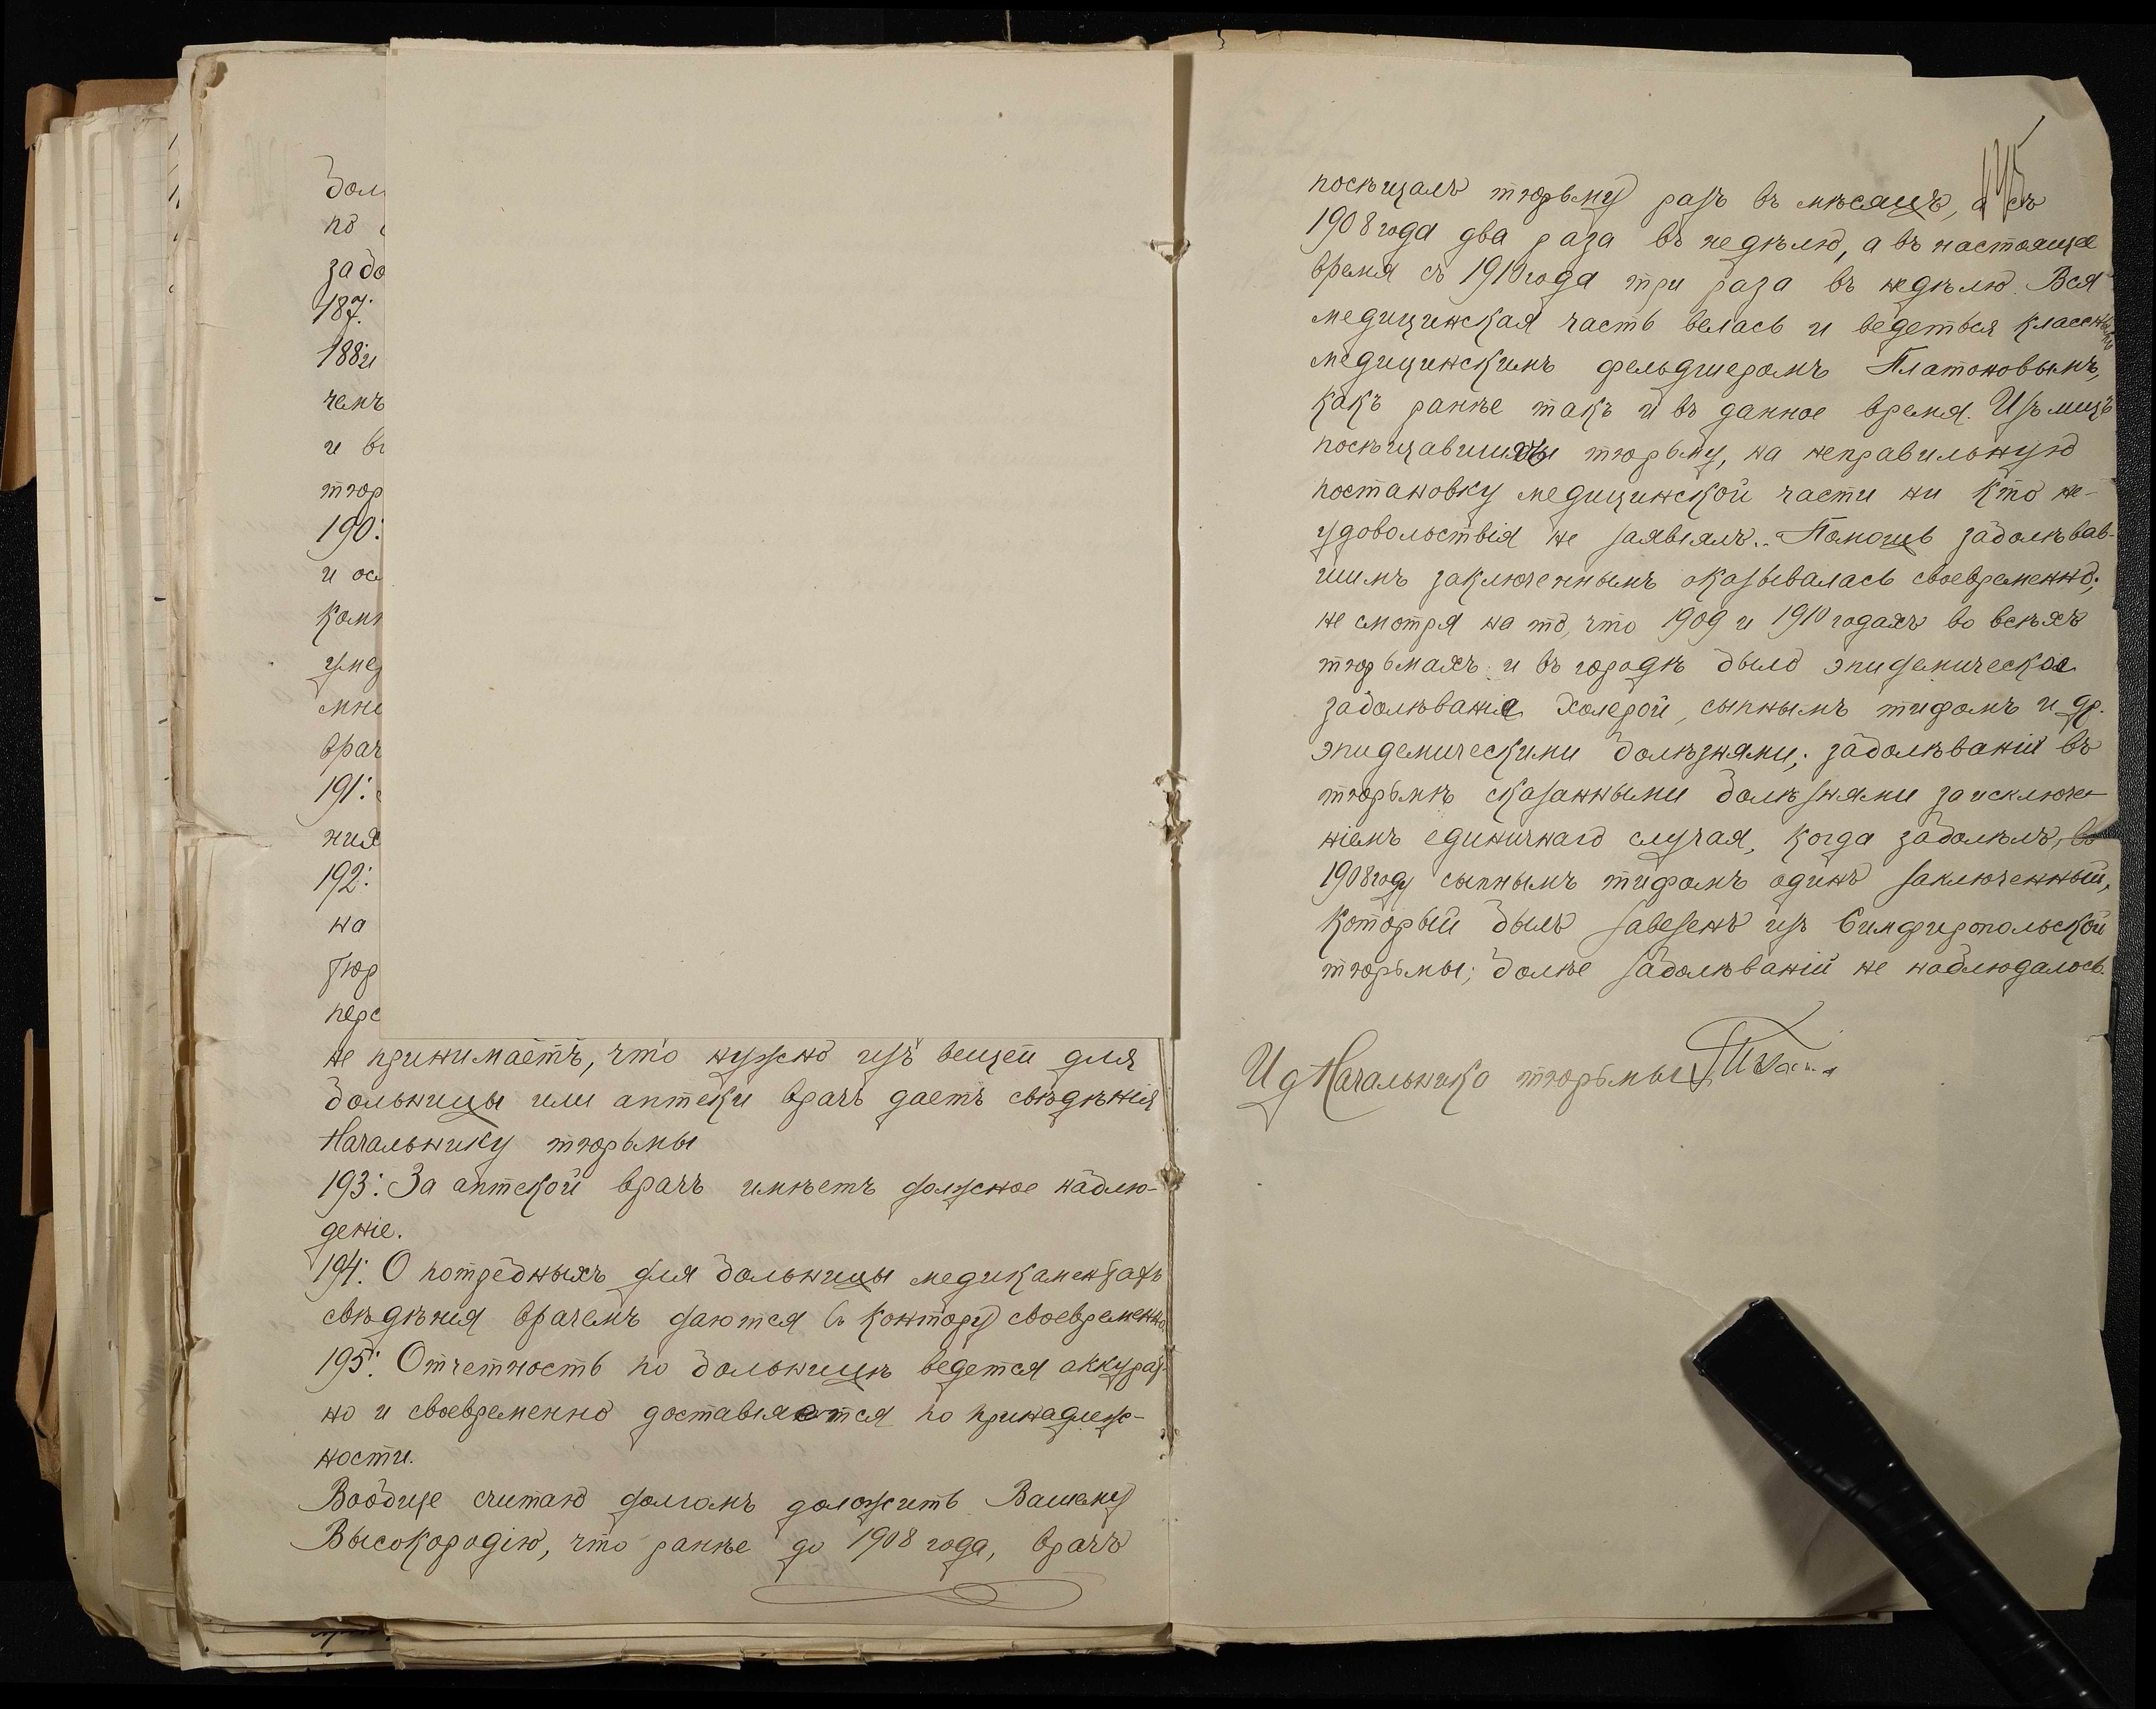 боль
по
забо
187:
188: и
чемъ
и
тюр
190:
и
умед
врач
191:
ния
192:
на
Тюр
перс
не принимаетъ, что нужно изъ вещей для
больницы или аптеки врачъ даетъ свѣдѣнія
Начальнику тюрьмы
193: За аптекой врачъ имѣетъ должное наблю-
деніе.
194: О потребныхъ для больницы медикаментахъ
свѣдѣния врачемъ даются въ контору своевременно
195: Отчетность по больницѣ ведется аккурат-
но и своевременно доставляется по принадлеж-
ности.
Вообще считаю долгомъ доложить Вашему
Высокородію, что ранѣе до 1908 года, врачъ
посѣщалъ тюрьму разъ въ мѣсяцъ, а съ
1908 года два раза въ недѣлю, а въ настоящее
время съ 1910 года три раза въ недѣлю. Вся
медицинская часть велась и ведеться классным
медицинскимъ фельдшеромъ Платоновымъ,
какъ ранѣе такъ и въ данное время. Изъ лицъ
посѣщавшихъ тюрьму, на неправильную
постановку медицинской части ни кто не-
удовольствія не заявлялъ. Помощь заболѣвав-
шимъ заключеннымъ оказывалась своевременно;
не смотря на то, что 1909 и 1910 годахъ во всѣхъ
тюрьмахъ и въ городѣ было эпидемическое
заболѣвание холерой, сыпнымъ тифомъ и др.
эпидемическими болѣзнями; заболѣваній въ
тюрьмѣ сказанными болѣзнями за исключе-
ніемъ единичнаго случая, когда заболѣлъ, въ
1908 году сыпнымъ тифомъ одинъ заключенный,
который былъ завезенъ изъ Симфиропольской
тюрьмы; болѣе заболѣваній не наблюдалось.
И д Начальника тюрьмы